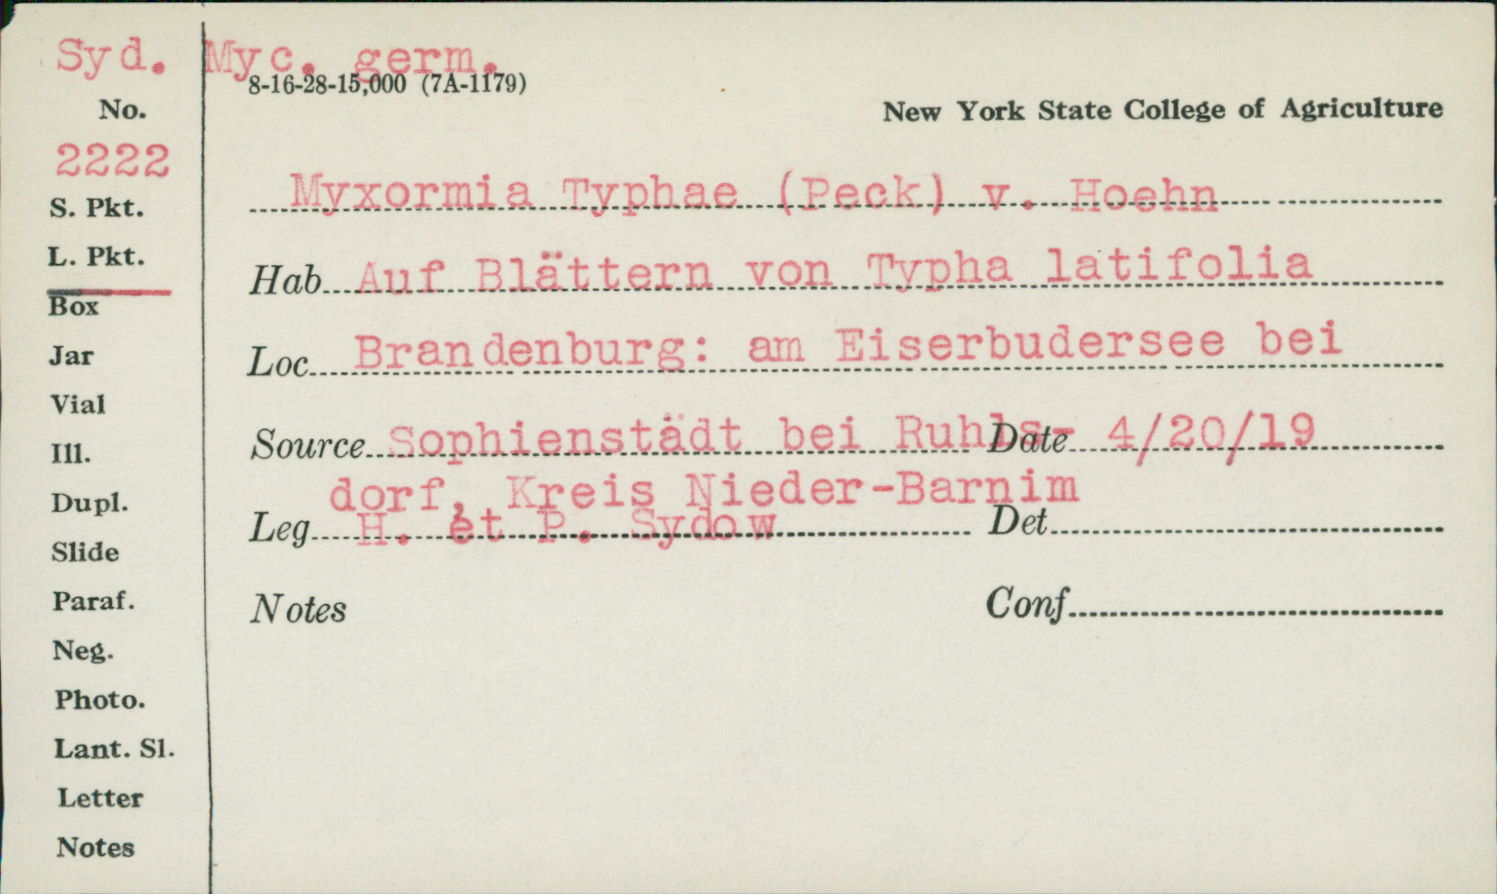 Syd. Myc. germ.
8-16-28-15,000 (7A-1179)
No.
New York State College of Agriculture
2222
Myxormia Typhae (Peck) v. Hoehn
S. Pkt.
L. Pkt.
Hab. Auf Blättern von Typha latifolia
Box
Jar
Loc. Brandenburg: am Eiserbudersee bei
Vial
Ill.
Source Sophienstädt bei Ruhls- Date 4/20/19
dorf, Kreis Nieder-Barnim
Dupl.
Leg. H. et P. Sydow Det.
Slide
Paraf.
Notes Conf.
Neg.
Photo.
Lant. Sl.
Letter
Notes